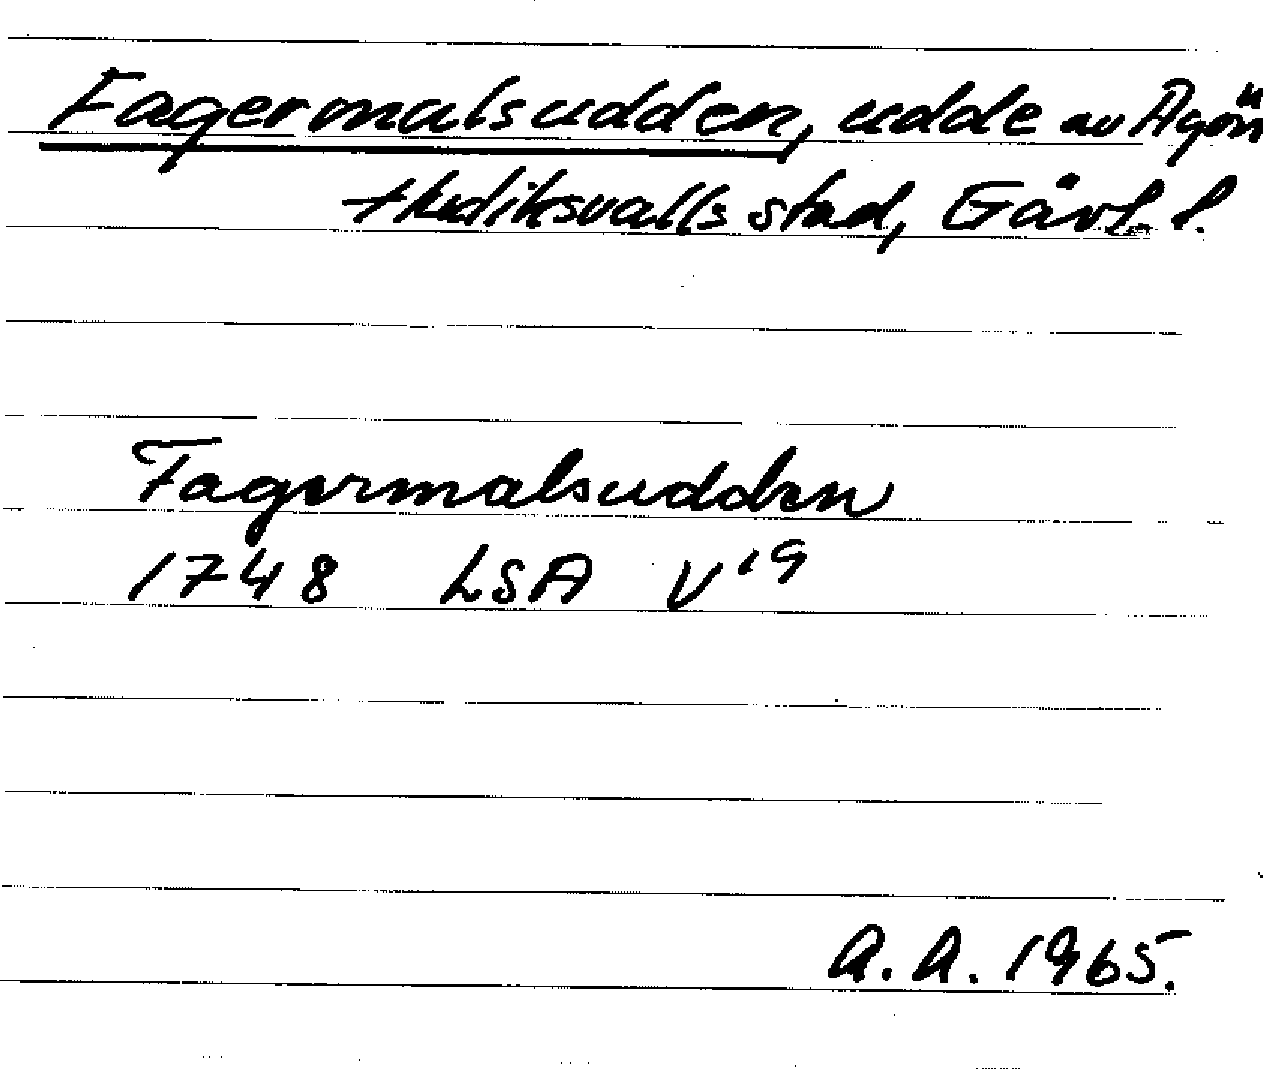 Fagermalsudden, udde av Agön
Hudiksvalls stad, Gävl. l.
Fagermalsudden
1748 LSA V19
A. A. 1965.